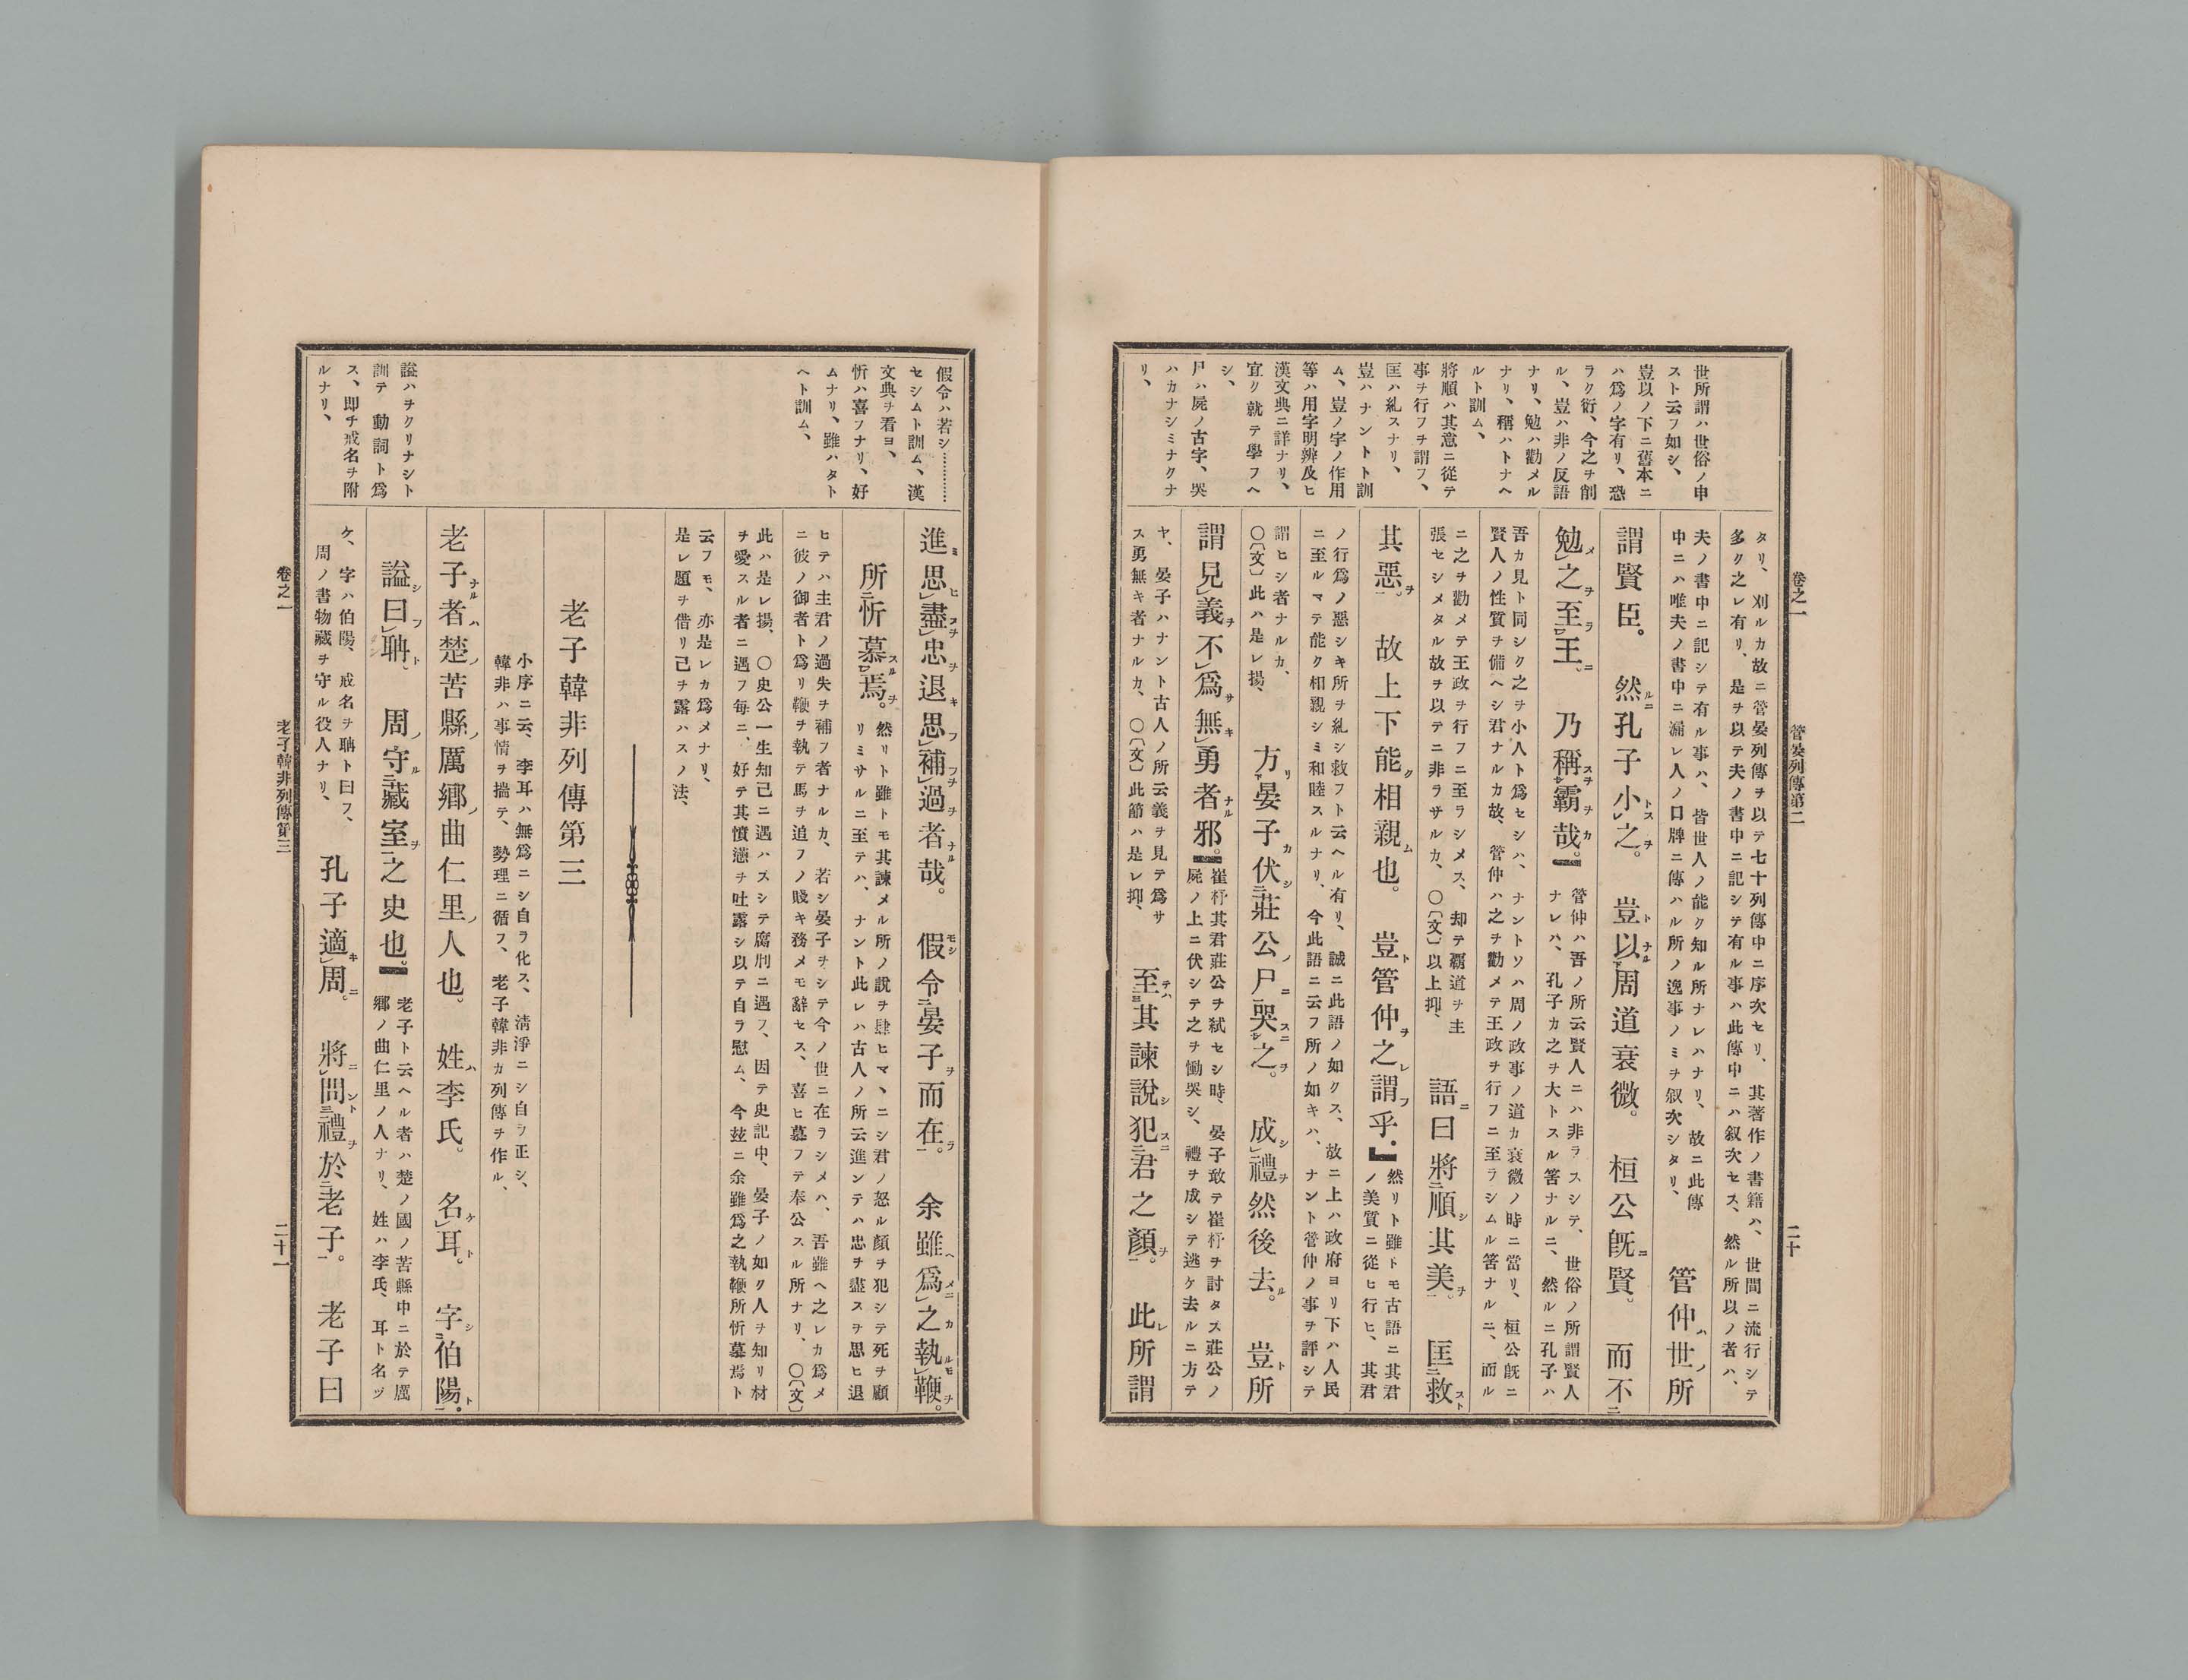 卷之一　管晏列傳第二　二十
世所謂ハ世俗ノ申
スト云フ如シ、
豈以ノ下ニ舊本ニ
ハ爲ノ字有リ、恐
ラク衍、今之ヲ削
ル、豈ハ非ノ反語
ナリ、勉ハ勸メル
ナリ、稱ハトナヘ
ルト訓ム、
將順ハ其意ニ從テ
事ヲ行フヲ謂フ、
匡ハ糺スナリ、
豈ハナントト訓
ム、豈ノ字ノ作用
等ハ用字明辨及ヒ
漢文典ニ詳ナリ、
宜ク就テ學フヘ
シ、
尸ハ屍ノ古字、哭
ハカナシミナクナ
リ、
タリ、刈ルカ故ニ管晏列傳ヲ以テ七十列傳中ニ序次セリ、其著作ノ書籍ハ、世間ニ流行シテ
多ク之レ有リ、是ヲ以テ夫ノ書中ニ記シテ有ル事ハ此傳中ニハ叙次セス、然ル所以ノ者ハ、
夫ノ書中ニ記シテ有ル事ハ、皆世人ノ能ク知ル所ナレハナリ、故ニ此傳
中ニハ唯夫ノ書中ニ漏レ人ノ口牌ニ傳ハル所ノ逸事ノミヲ叙次シタリ、
管仲世所
謂賢臣。然孔子小之。豈以周道衰微。桓公既賢。而不
勉之至王、乃稱霸哉。
管仲ハ吾ノ所云賢人ニハ非ラスシテ、世俗ノ所謂賢人
ナレハ、孔子カ之ヲ大トスル筈ナルニ、然ルニ孔子ハ
吾カ見ト同シク之ヲ小人ト爲セシハ、ナントソハ周ノ政事ノ道カ衰微ノ時ニ當リ、桓公既ニ
賢人ノ性質ヲ備ヘシ君ナルカ故、管仲ハ之ヲ勸メテ王政ヲ行フニ至ラシムル筈ナルニ、而ル
ニ之ヲ勸メテ王政ヲ行フニ至ラシメス、却テ覇道ヲ主
張セシメタル故ヲ以テニ非ラサルカ、〇〔文〕以上抑、
語曰將順其美。匡救
其惡。故上下能相親也。豈管仲之謂乎。
然リト雖トモ古語ニ其君
ノ美質ニ從ヒ行ヒ、其君
ノ行爲ノ惡シキ所ヲ糺シ救フト云ヘル有リ、誠ニ此語ノ如クス、故ニ上ハ政府ヨリ下ハ人民
ニ至ルマテ能ク相親シミ和睦スルナリ、今此語ニ云フ所ノ如キハ、ナント管仲ノ事ヲ評シテ
謂ヒシ者ナルカ、
〇〔文〕此ハ是レ揚、
方晏子伏莊公尸哭之。成禮然後去。豈所
謂見義不爲無勇者邪。
崔杼其君莊公ヲ弑セシ時、晏子敢テ崔杼ヲ討タス莊公ノ
屍ノ上ニ伏シテ之ヲ慟哭シ、禮ヲ成シテ逃ケ去ルニ方テ
ヤ、晏子ハナント古人ノ所云義ヲ見テ爲サ
ス勇無キ者ナルカ、〇〔文〕此節ハ是レ抑、
至其諫說犯君之顏。此所謂
假令ハ若シ…………
セシムト訓ム、漢
文典ヲ看ヨ、
忻ハ喜フナリ、好
ムナリ、雖ハタト
ヘト訓ム、
謚ハヲクリナシト
訓テ　動詞ト爲
ス、即チ戒名ヲ附
ルナリ、
進思盡忠退思補過者哉。假令晏子而在。余雖爲之執鞭。
所忻慕焉。
然リト雖トモ其諫メル所ノ說ヲ肆ヒマヽニシ君ノ怒ル顏ヲ犯シテ死ヲ顧
リミサルニ至テハ、ナント此レハ古人ノ所云進ンテハ忠ヲ盡スヲ思ヒ退
ヒテハ主君ノ過失ヲ補フ者ナルカ、若シ晏子ヲシテ今ノ世ニ在ラシメハ、吾雖ヘ之レカ爲メ
ニ彼ノ御者ト爲リ鞭ヲ執テ馬ヲ追フノ賤キ務メモ辭セス、喜ヒ慕フテ奉公スル所ナリ、〇〔文〕
此ハ是レ揚、〇史公一生知己ニ遇ハスシテ腐刑ニ遇フ、因テ史記中、晏子ノ如ク人ヲ知リ材
ヲ愛スル者ニ遇フ每ニ、好テ其憤懣ヲ吐露シ以テ自ラ慰ム、今玆ニ余雖爲之執鞭所忻慕焉ト
云フモ、亦是レカ爲メナリ、
是レ題ヲ借リ己ヲ露ハスノ法、
老子韓非列傳第三
小序ニ云、李耳ハ無爲ニシ自ラ化ス、清淨ニシ自ラ正シ、
韓非ハ事情ヲ揣テ、勢理ニ循フ、老子韓非カ列傳ヲ作ル、
老子者楚苦縣厲鄕曲仁里人也。姓李氏。名耳。字伯陽。
謚曰聃。周守藏室之史也。
老子ト云ヘル者ハ楚ノ國ノ苦縣中ニ於テ厲
鄕ノ曲仁里ノ人ナリ、姓ハ李氏、耳ト名ヅ
ケ、字ハ伯陽、戒名ヲ聃ト曰フ、
周ノ書物藏ヲ守ル役人ナリ、
孔子適周。將問禮於老子。老子曰
卷之一　老子韓非列傳第三　二十一